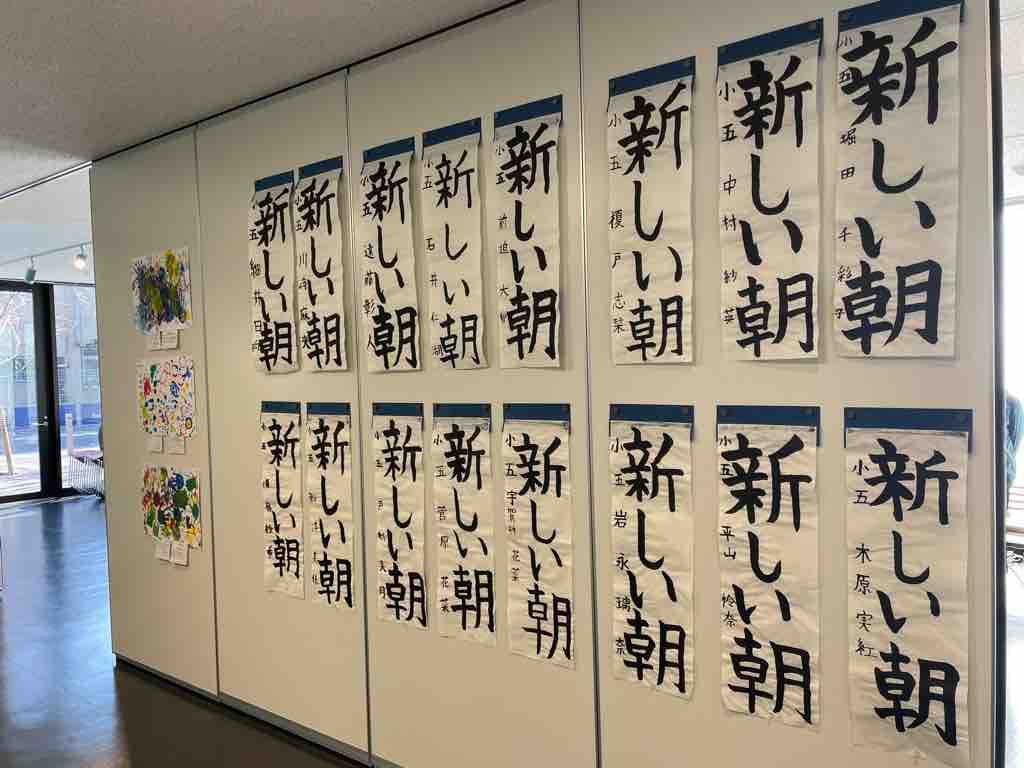 新しい朝
小五 堀田 千彩子
新しい朝
小五 中村 紗英
新しい朝
小五 榎戸 志栞
新しい朝
小五
新しい朝
小五 石井 仁湖
新しい朝
小五 遠藤 彰人
新しい朝
小五
新しい朝
小五 細井 日向
新しい朝
小五 木原 実紅
新しい朝
小五 平山 怜奈
新しい朝
小五 岩永 璃奈
新しい朝
小五 宇賀神 花菜
新しい朝
小五 菅原 花菜
新しい朝
小五
新しい朝
小五
新しい朝
小五